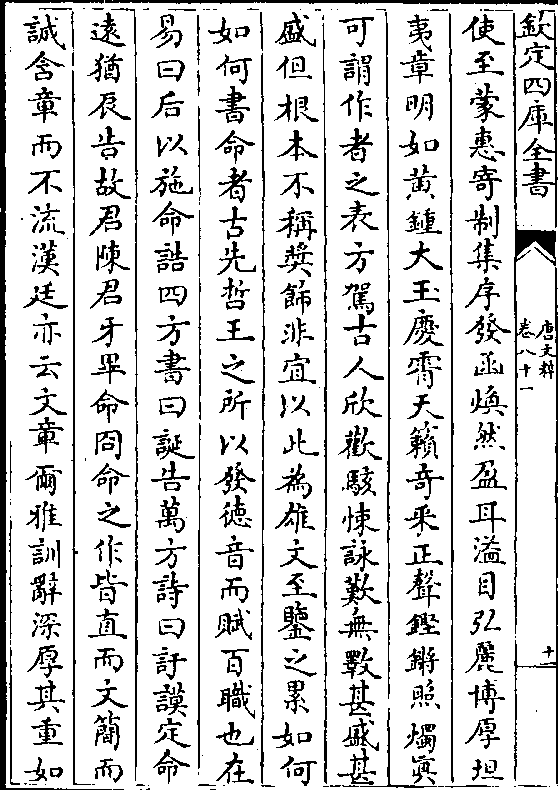 欽定四庫全書
唐文粹
卷八十一
十一
使至蒙惠寄制集序發函煥然盈耳溢目弘麗博厚坦
夷章明如黃鍾大玉慶霄天籟奇采正聲鏗鏘照燭寔
可謂作者之表方駕古人欣歡駭悚詠歎無斁甚盛甚
盛但根本不稱奬飾非宜以此為雄文至鑒之累如何
如何書命者古先哲王之所以發德音而賦百職也在
易曰后以施命誥四方書曰誕告萬方詩曰訏謨定命
遠猶辰告故君陳君牙畢命冏命之作皆直而文簡而
誠含章而不流漢廷亦云文章爾雅訓辭深厚其重如